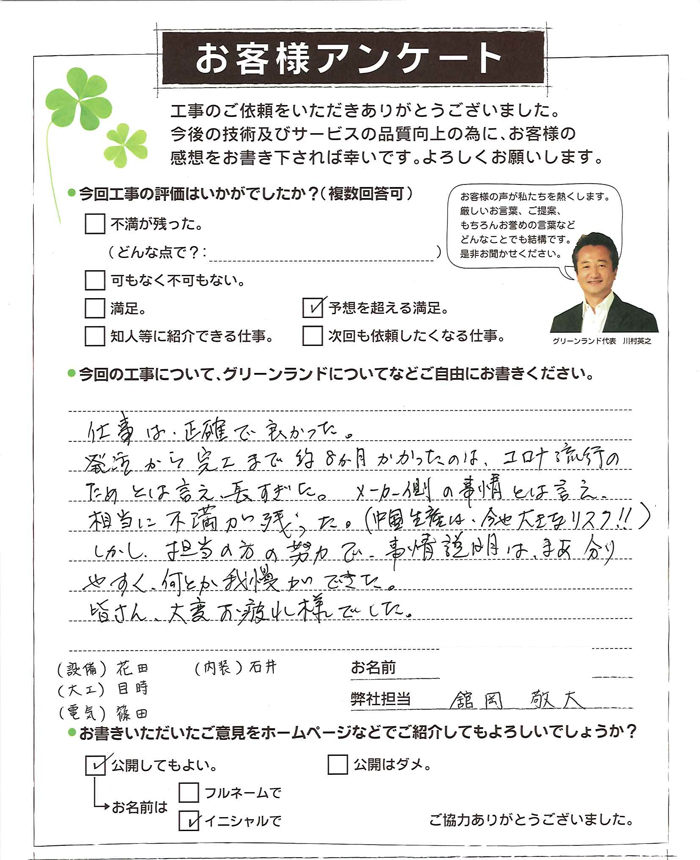 お客様アンケート
工事のご依頼をいただきありがとうございました。
今後の技術及びサービスの品質向上の為に、お客様の
感想をお書き下されば幸いです。よろしくお願いします。
●今回工事の評価はいかがでしたか？(複数回答可)
お客様の声が私たちを熱くします。
厳しいお言葉、ご提案、
もちろんお誉めの言葉など
どんなことでも結構です。
是非お聞かせください。
不満が残った。
(どんな点で？: )
可もなく不可もない。
満足。 予想を超える満足。
知人等に紹介できる仕事。 次回も依頼したくなる仕事。
グリーンランド代表 川村英之
●今回の工事について、グリーンランドについてなどご自由にお書きください。
仕事は、正確で良かった。
発注から完工まで約8か月かかったのは、コロナ流行の
ためとは言え、長すぎた。 メーカー側の事情とは言え、
相当に不満が残った。(中国生産は、今や大きなリスク!!)
しかし、担当の方の努力で、事情説明は、まあ分り
やすく、何とか我慢ができた。
皆さん、大変お疲れ様でした。
(設備) 花田 (内装) 石井
(大工) 目時
(電気) 篠田
お名前
弊社担当 舘岡 敬大
●お書きいただいたご意見をホームページなどでご紹介してもよろしいでしょうか？
公開してもよい。 公開はダメ。
お名前は フルネームで
イニシャルで
ご協力ありがとうございました。